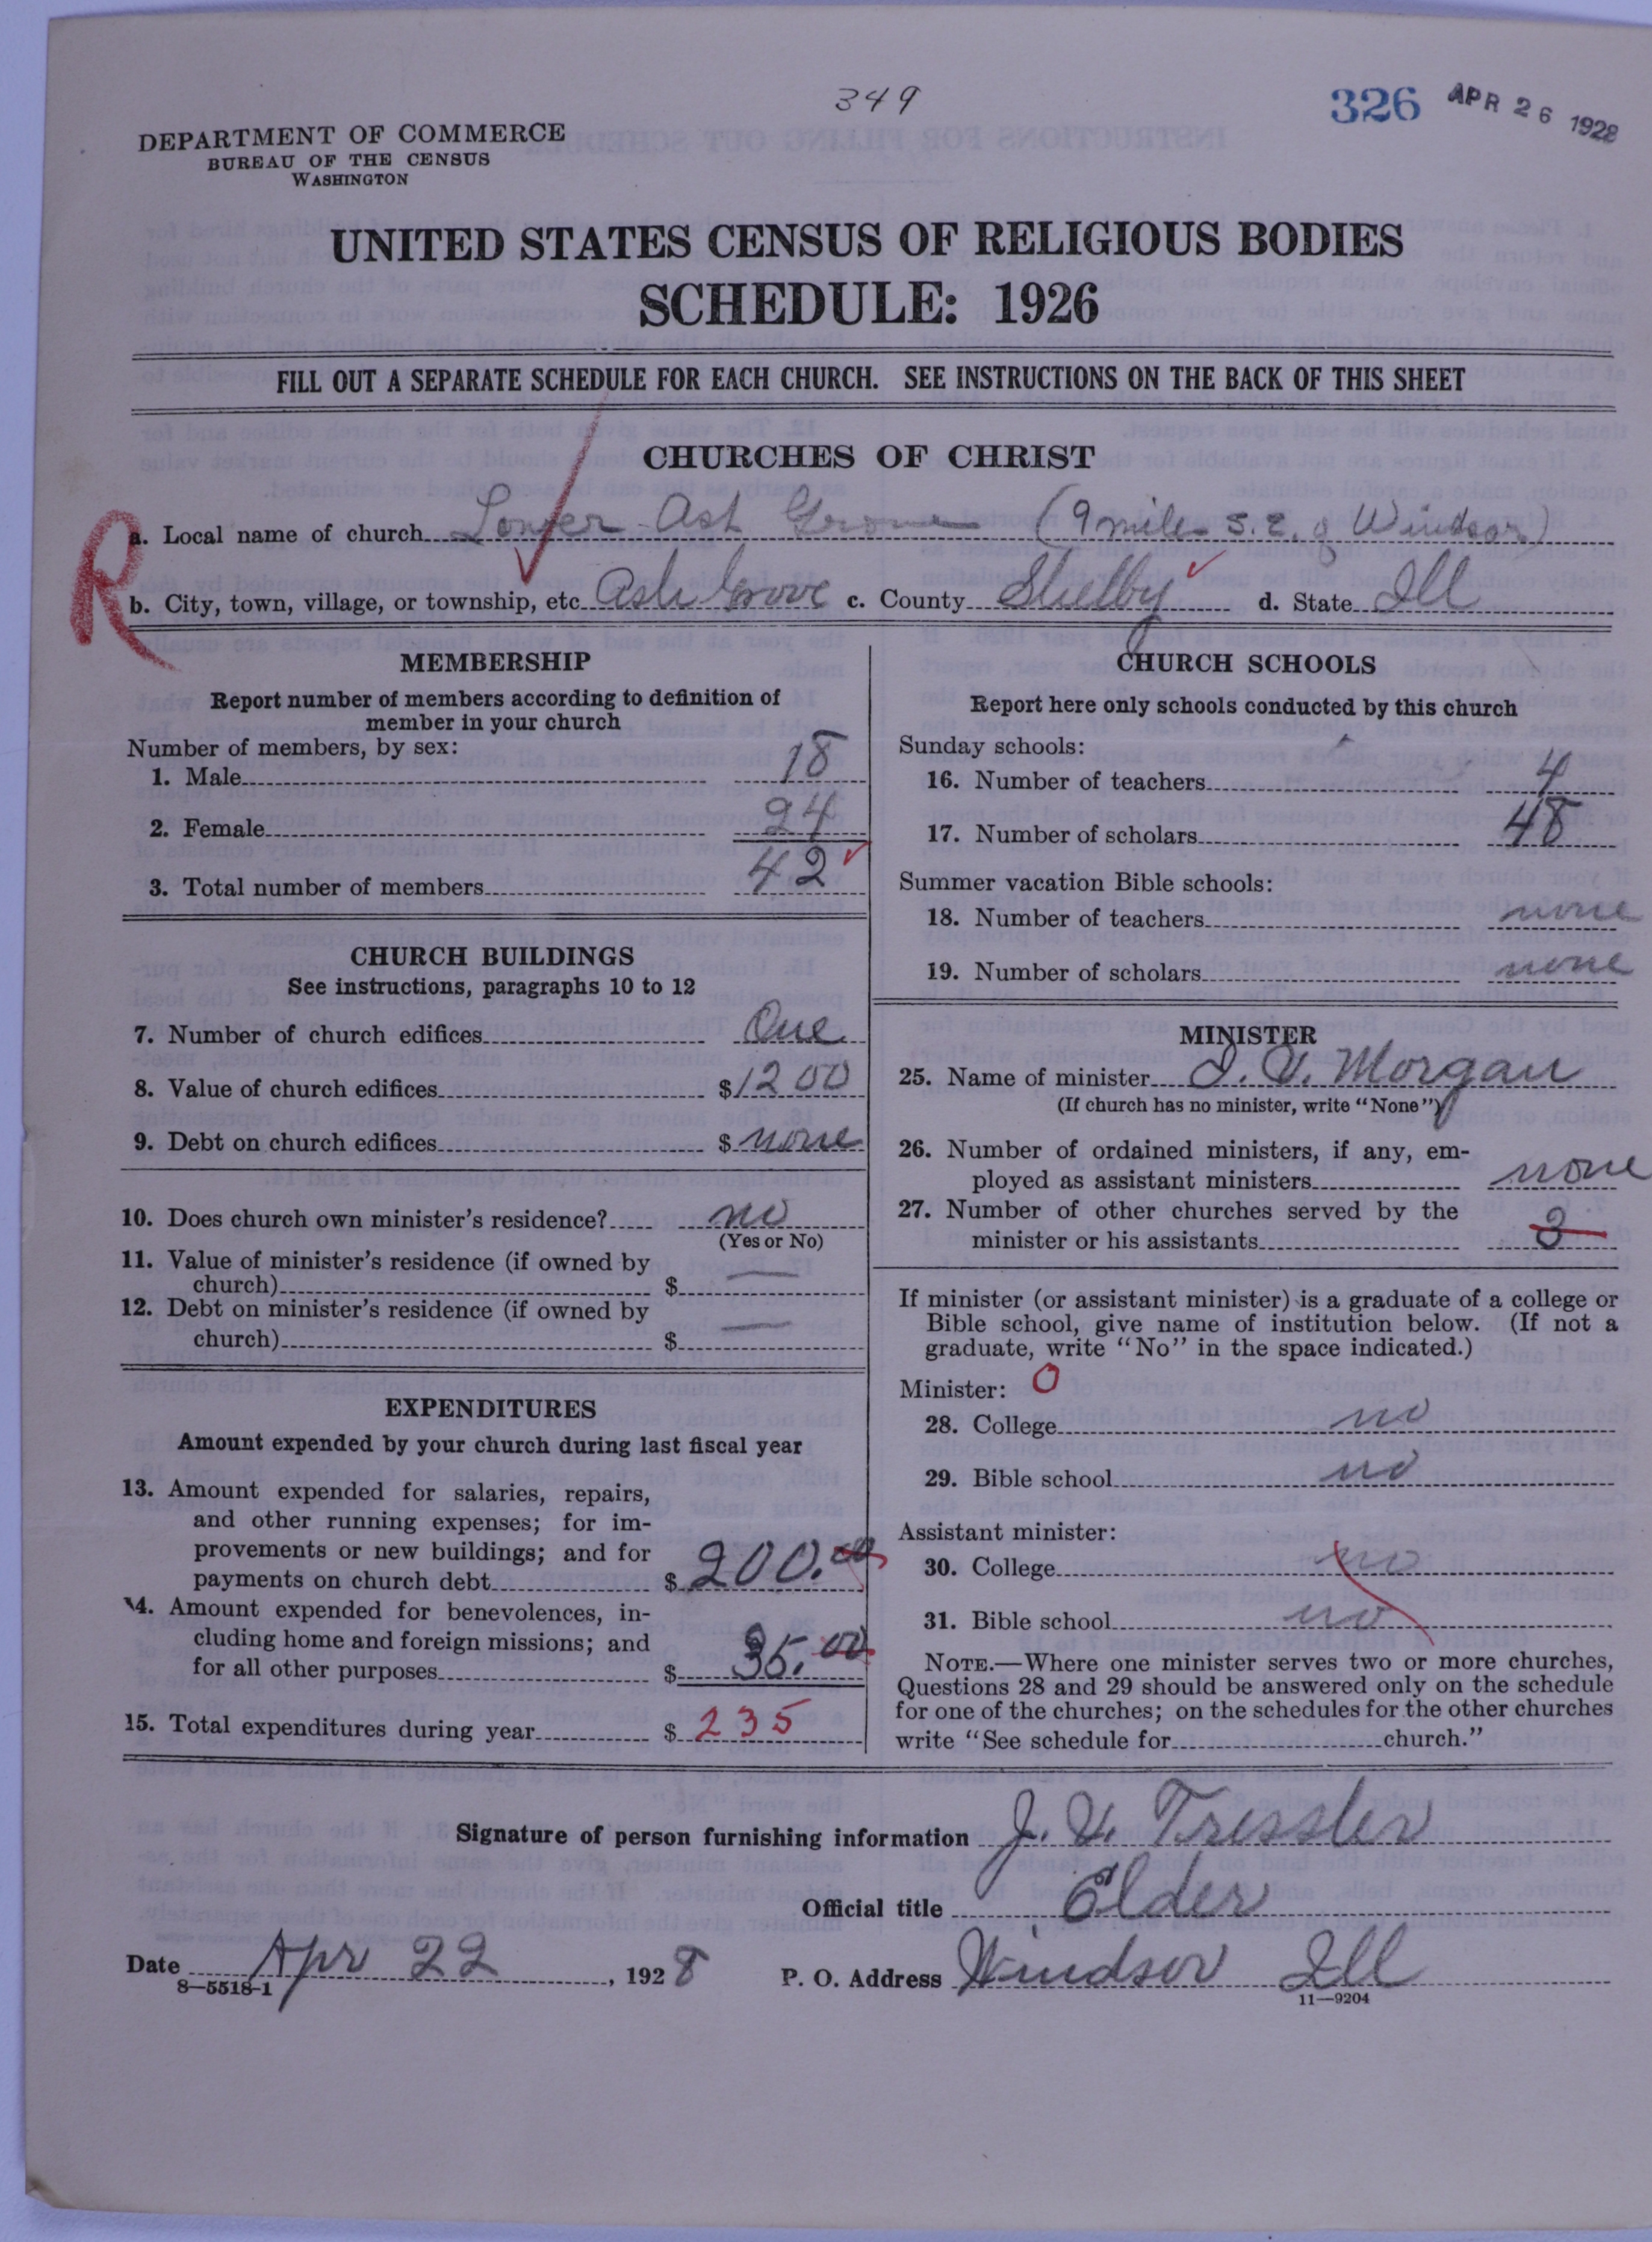 349
326 APR 26 1928
DEPARTMENT OF COMMERCE
BUREAU OF THE CENSUS
WASHINGTON
UNITED STATES CENSUS OF RELIGIOUS BODIES
SCHEDULE: 1926
FILL OUT A SEPARATE SCHEDULE FOR EACH CHURCH. SEE INSTRUCTIONS ON THE BACK OF THIS SHEET
CHURCHES OF CHRIST
R
a. Local name of church Lower Ash Grove (9 miles S.E. of Windsor)
b. City, town, village, or township, etc. Ash Grove c. County Shelby d. State Ill
MEMBERSHIP
Report number of members according to definition of
member in your church
Number of members, by sex:
1. Male 18
2. Female 24
3. Total number of members 42
CHURCH BUILDINGS
See instructions, paragraphs 10 to 12
7. Number of church edifices One
8. Value of church edifices $1200
9. Debt on church edifices $ none
10. Does church own minister's residence? no
(Yes or No)
11. Value of minister's residence (if owned by
church) $ —
12. Debt on minister's residence (if owned by
church) $ —
EXPENDITURES
Amount expended by your church during last fiscal year
13. Amount expended for salaries, repairs,
and other running expenses; for im-
provements or new buildings; and for
payments on church debt $ 200.00
14. Amount expended for benevolences, in-
cluding home and foreign missions; and
for all other purposes $ 35.00
15. Total expenditures during year $ 235
CHURCH SCHOOLS
Report here only schools conducted by this church
Sunday schools:
16. Number of teachers 4
17. Number of scholars 48
Summer vacation Bible schools:
18. Number of teachers none
19. Number of scholars none
MINISTER
25. Name of minister I. V. Morgan
(If church has no minister, write "None")
26. Number of ordained ministers, if any, em-
ployed as assistant ministers none
27. Number of other churches served by the
minister or his assistants 3
If minister (or assistant minister) is a graduate of a college or
Bible school, give name of institution below. (If not a
graduate, write "No" in the space indicated.)
Minister: 0
28. College no
29. Bible school no
Assistant minister:
30. College no
31. Bible school no
NOTE.—Where one minister serves two or more churches,
Questions 28 and 29 should be answered only on the schedule
for one of the churches; on the schedules for the other churches
write "See schedule for church."
Signature of person furnishing information J. V. Tressler
Official title Elder
Date Apr 22, 1928 P. O. Address Windsor Ill
8—5518-1 11—9204